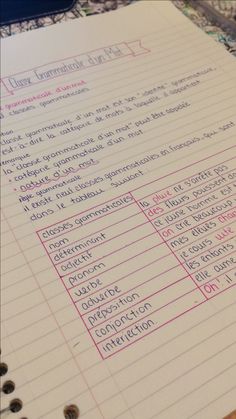 Classe Grammaticale d'un Mot
grammaticale d'un mot
classes grammaticales
classe grammaticale d'un mot est son identité grammaticale,
est-à-dire la catégorie de mots à laquelle il appartient
remarque
la classe grammaticale d'un mot peut être appelé
• catégorie grammaticale d'un mot
• nature d'un mot
grammaticale
il existe neuf classes grammaticales en français, qui sont
dans le tableau suivant
classes grammaticales
nom
la pluie ne s'arrête pas
déterminant
des fleurs poussent dans
adjectif
un homme est
pronom
on crie beaucoup
verbe
mes élèves
adverbe
je cours vite
préposition
les enfants
conjonction
elle aime
interjection.
oh!